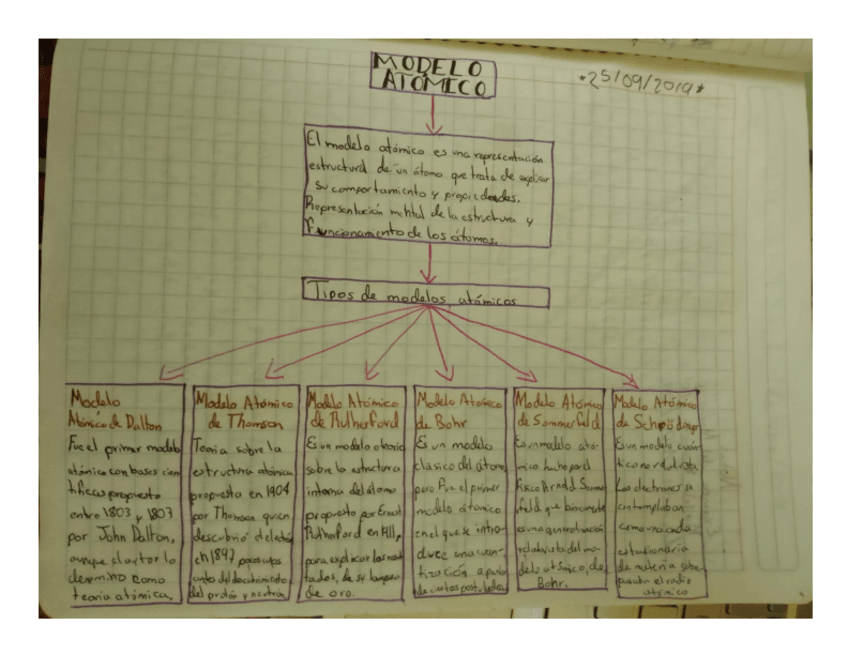 MODELO
ATÓMICO
*25/09/2019*
El modelo atómico es una representación
estructural de un átomo que trata de explicar
su comportamiento y propiedades.
Representación mental de la estructura y
funcionamiento de los átomos.
Tipos de modelos atómicos
Modelo
Atómico de Dalton
Fue el primer modelo
atómico con bases cien
tíficas propuesto
entre 1803 y 1807
por John Dalton,
aunque el autor lo
denomino como
teoria atómica.
Modelo Atómico
de Thomson
Teoria sobre la
estructura atómica
propuesta en 1904
por Thomson quien
descubrió el
en 1897 pocos
antes del descubrimiento
del protón y neutrón
Modelo Atómico
de Rutherford
Es un modelo o teoria
sobre la estructura
interna del átomo
propuesto por Ernest
Rutherford en 1911,
para explicar los
tados, de su
de oro.
Modelo Atómico
de Bohr
Es un modelo
clasico del átomo,
pero fue el primer
modelo atómico
en el que se intro
duce una cuan
tización a partir
de ciertos postulados
Modelo Atómico
de Sommerfeld
Es un modelo ató
mico hecho por el
físico Arnold Somme
rfeld que
es una generalización
relativista del mo
delo atómico, de
Bohr.
Modelo Atómico
de
Es un modelo cuán
tico no relativista
Los electrones se
contemplaban
como una onda
estacionaria
de materia
el radio
atómico